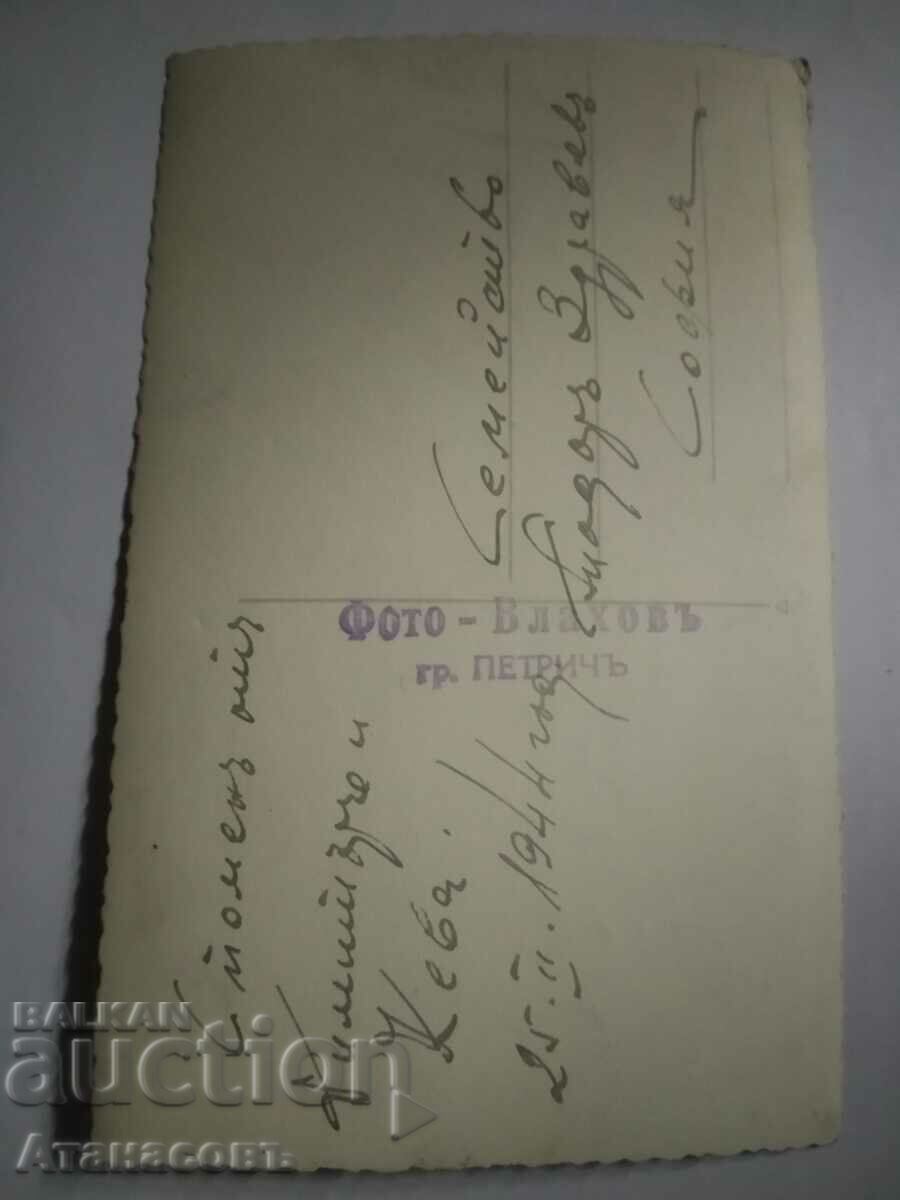 Споменъ отъ
Димитърче и
Кева.
25.II.1944 год
Фото - Влаховъ
гр. ПЕТРИЧЪ
Семейство
Тодоръ Здравевъ
София
BALKAN
auction
Атанасовъ